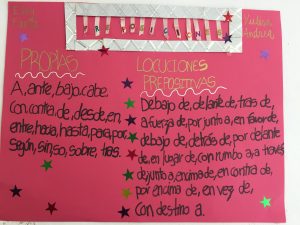 PREPOSICIONES
Yulisa
Andrea
PROPIAS
A, ante, bajo, cabe
Con, contra, de, desde, en
entre, hacia, hasta, para, por
según, sin, so, sobre, tras.
LOCUCIONES
PREPOSITIVAS
Debajo de, delante de, tras de,
a fuerza de, por junto a, en favor de,
debajo de, detrás de, por delante
de, en lugar de, con rumbo a, a través
de, junto a, encima de, en contra de,
por encima de, en vez de,
con destino a.